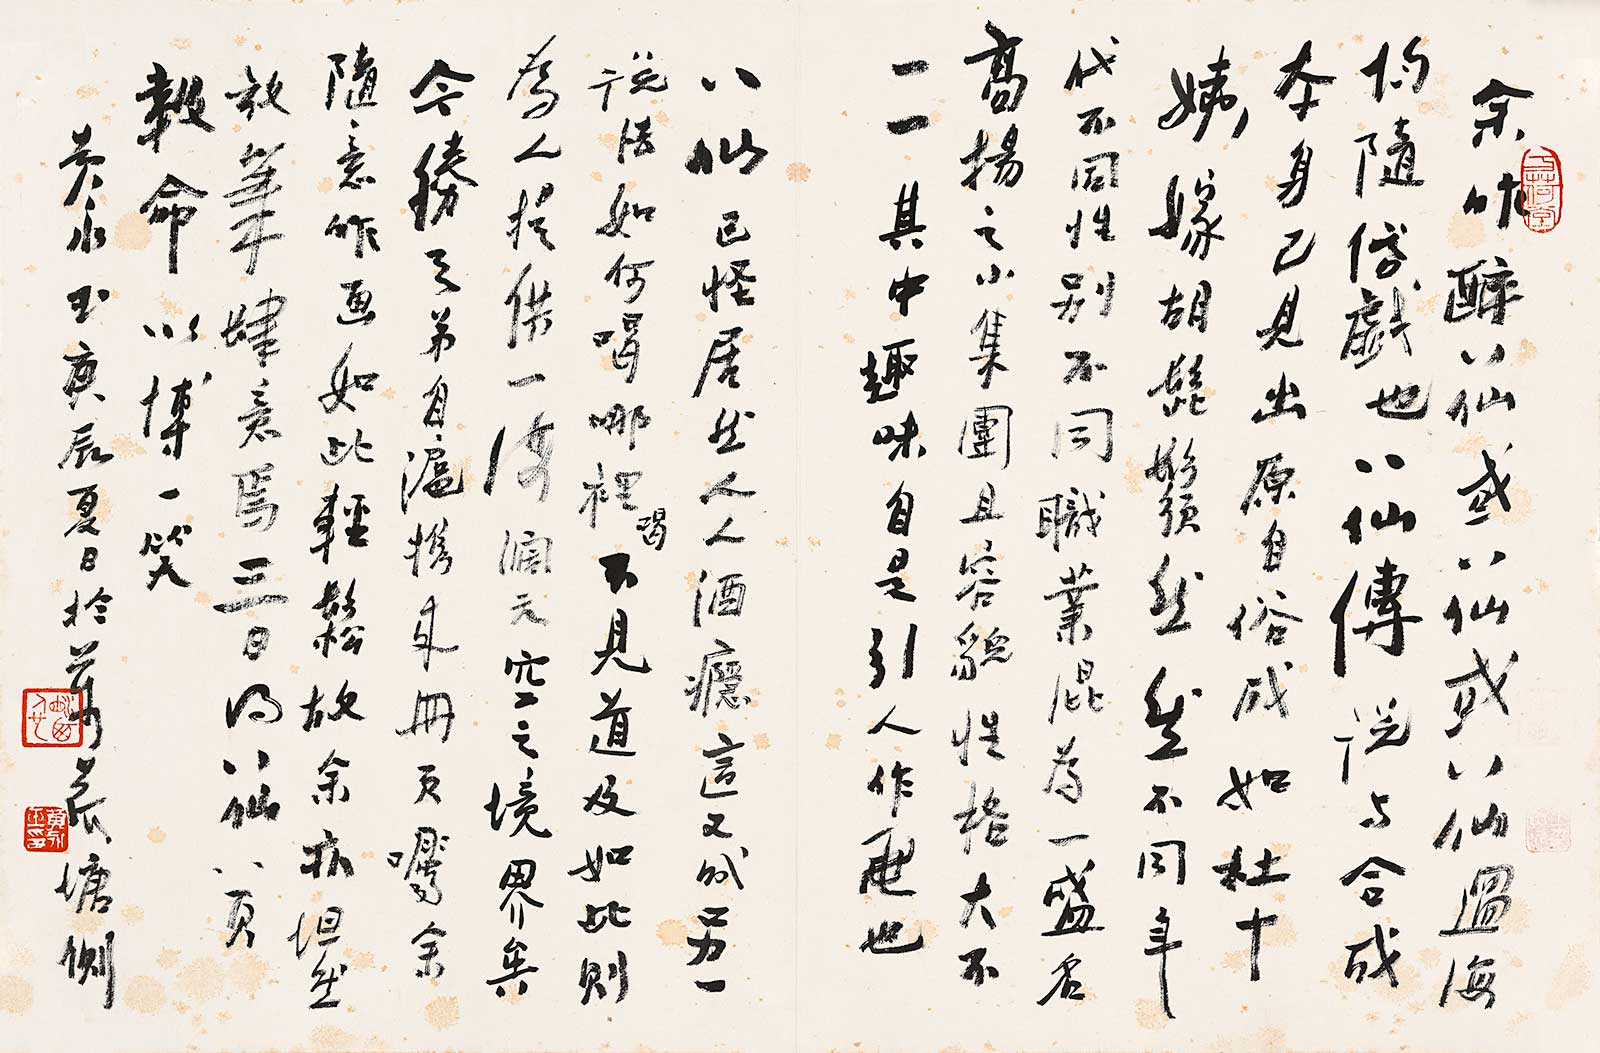 余作醉八仙或八仙或八仙過海
均隨俗戲也八仙傳說與合成
本身已見出原自俗成如杜十
姨嫁胡髭鬚然然不同年
代不同性別不同職業混為一盛名
高揚之小集團且容貌性格大不
一一其中趣味自是引人作画也
八仙已怪居然人人酒癮這又成另一
說法如何喝哪裡喝不見道及如此則
為人提供一海闊天空之境界矣
今勝之弟自滬攜來冊頁囑余
隨意作画如此輕鬆故余亦坦然
放筆肆意焉三日得八仙八頁
報命以博一笑
黃永玉庚辰夏日於萬荷塘側
黃永玉印